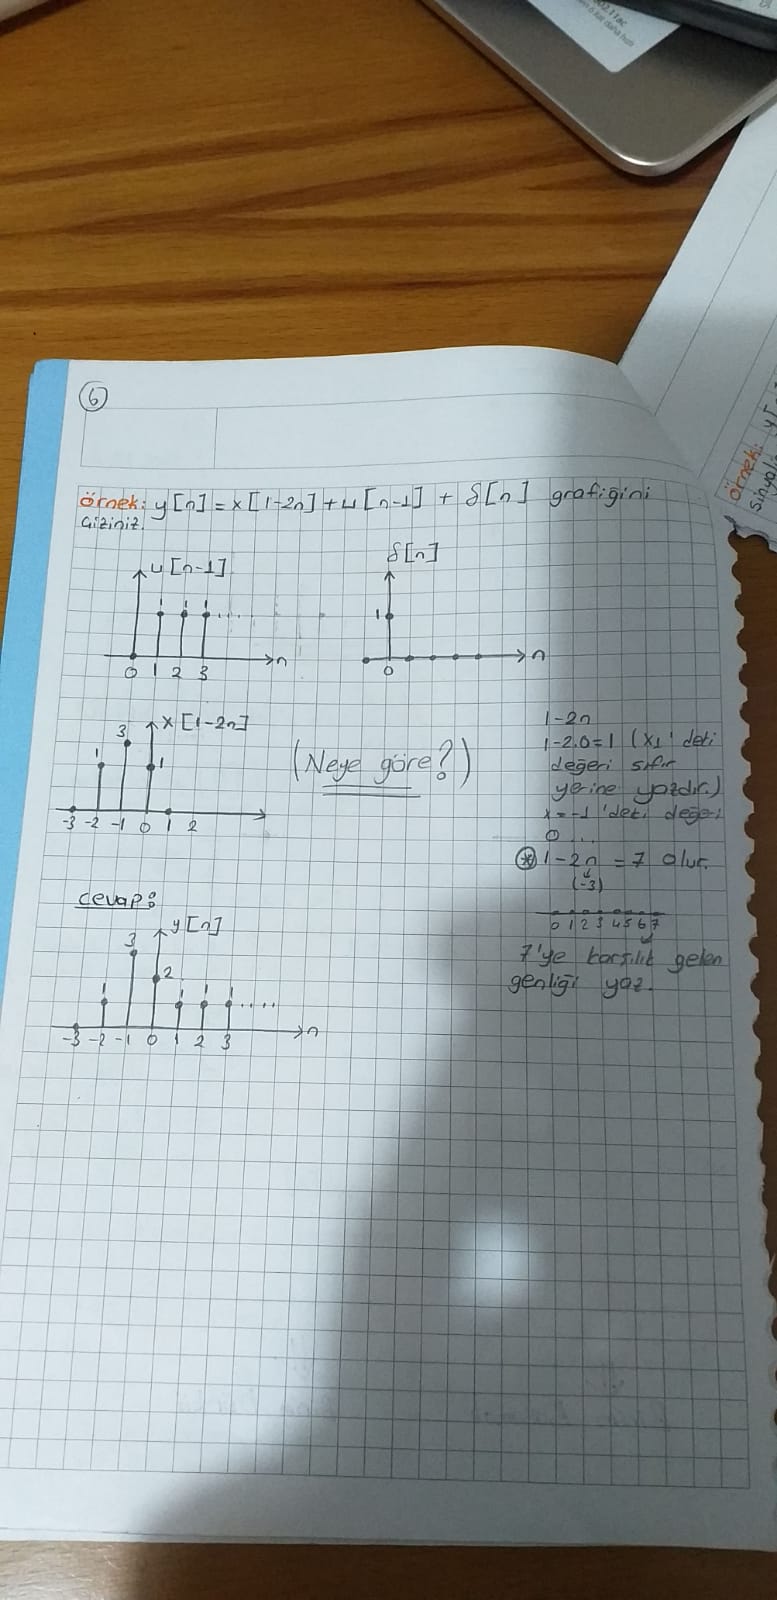 802.11ac
6 kat daha hızlı
6
örnek: y[n] = x[1-2n] + u[n-1] + δ[n] grafiğini
çiziniz.
u[n-1]
1 1 1 ....
0 1 2 3
n
δ[n]
1
0
n
x[1-2n]
3
1
1
-3 -2 -1 0 1 2
(Neye göre?)
1-2n
1-2.0=1 (x1' deki
değeri sıfır
yerine yazdır.)
x=-1 'deki değeri
0 ...
* 1-2n = 7 olur.
(-3)
0 1 2 3 4 5 6 7
7'ye karşılık gelen
genliği yaz.
cevap:
y[n]
3
2
1 1 1 1 ....
-3 -2 -1 0 1 2 3
n
örnek: y[
sinyal